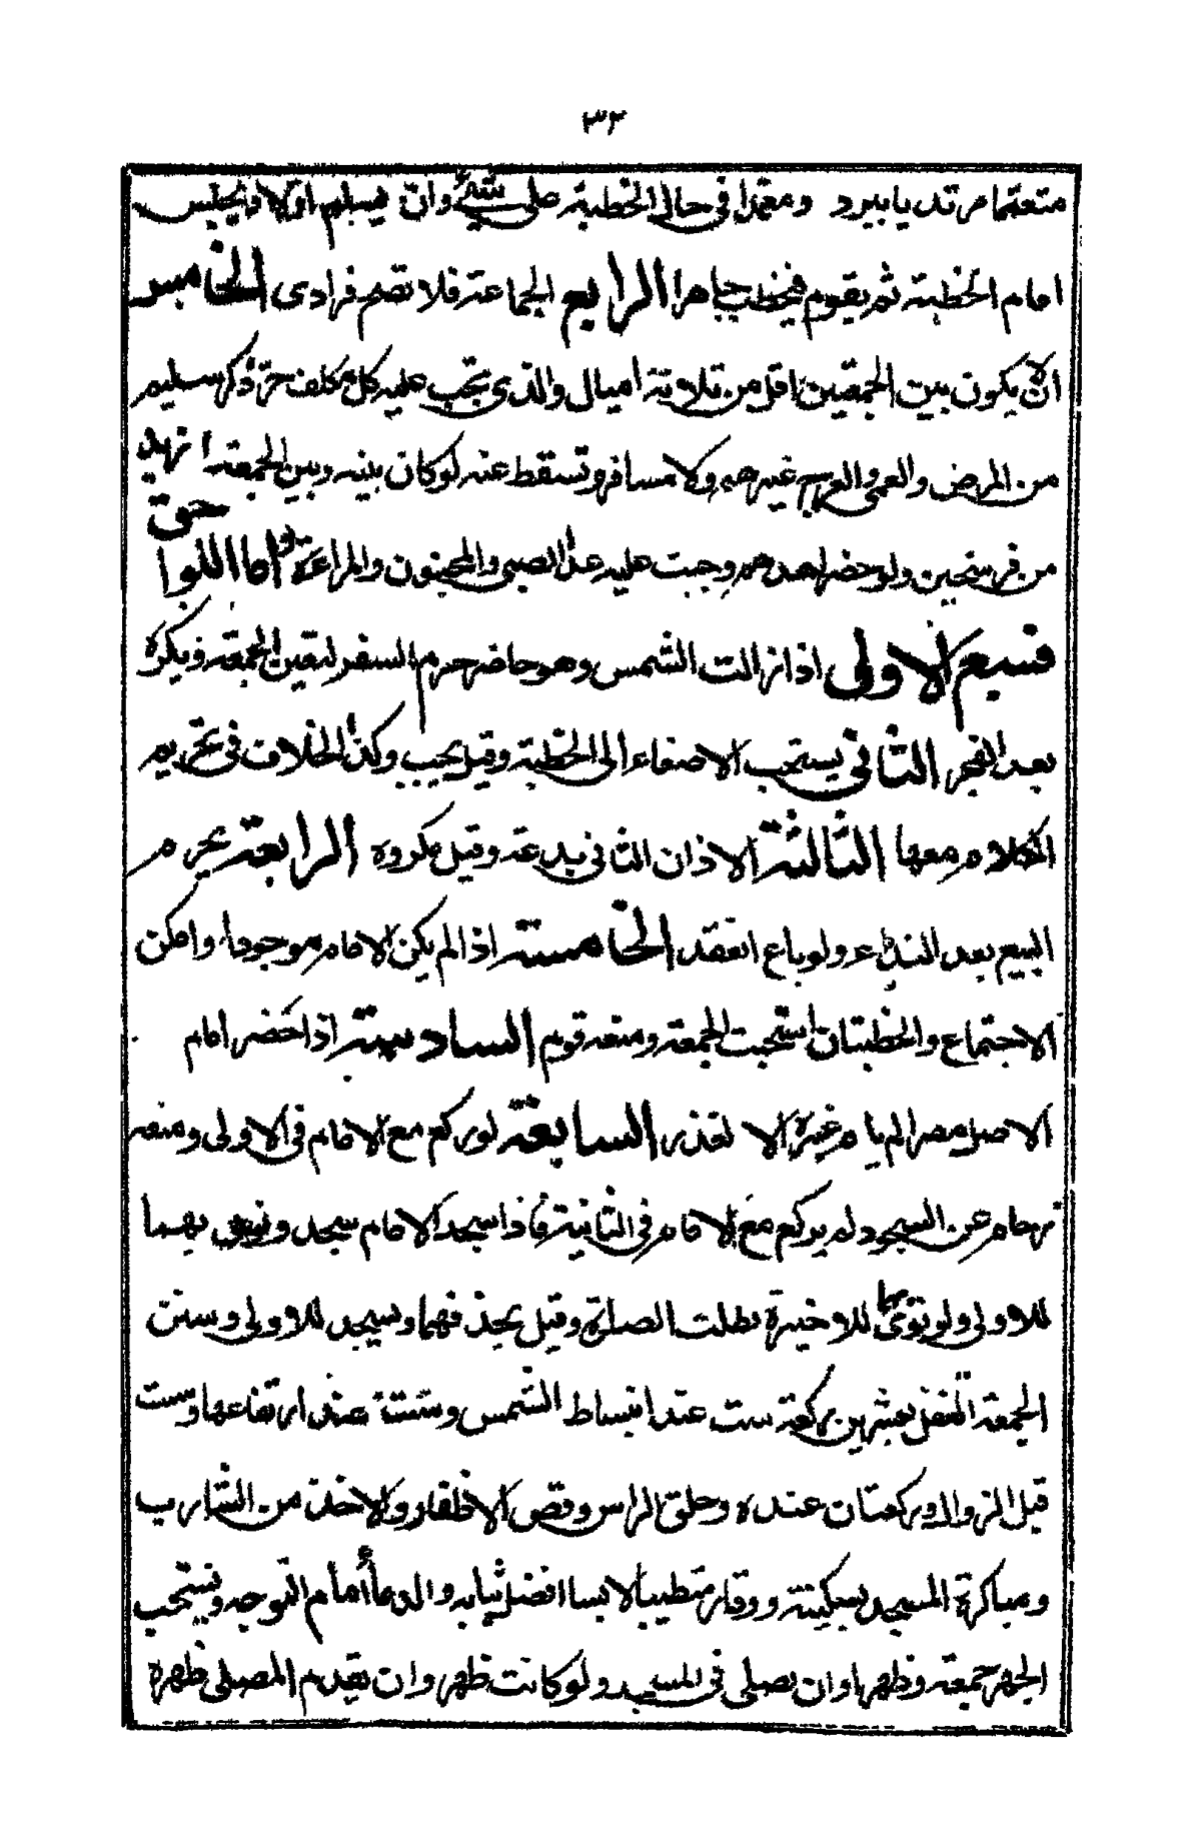 ٣٣
متعمما مرتديا ببرد ومعتمدا في حال الخطبة على شئ وان يسلم اولا ويجلس
امام الخطبة ثم يقوم فيخطب جاهرا الرابع الجماعة فلا تصح فرادى الخامس
ان لا يكون بين الجمعتين اقل من ثلاثة اميال والذي تجب عليه كل مكلف حر ذكر سليم
من المرض والعمى والعرج غير هم ولا مسافر وتسقط عنه لو كان بينه وبين الجمعة ازيد
من فرسخين ولو حضر احدهم وجبت عليه عدا الصبي والمجنون والمراة واما اللواحق
فسبع الاولى اذا زالت الشمس وهو حاضر حرم السفر لتعين الجمعة ويكره
بعد الفجر الثاني يستحب الاصغاء الى الخطبة وقيل يجب وكذا الخلاف في تحريم
الكلام معها الثالثة الاذان الثاني بدعة وقيل مكروه الرابعة يحرم
البيع بعد النداء ولو باع انعقد الخامسة اذا لم يكن الامام موجودا وامكن
الاجتماع والخطبتان استحبت الجمعة ومنعه قوم السادسة اذا حضر امام
الاصل مصرا لم يام غيره الا لعذر السابعة لو ركع مع الامام في الاولى ومنعه
زحام عن السجود لم يركع مع الامام في الثانية فاذا سجد الامام سجد ونوى بهما
للاولى ولو نوى بهما للاخيرة بطلت الصلوة وقيل يحذفهما ويسجد للاولى وسنن
الجمعة التنفل بعشرين ركعة ست عند انبساط الشمس وستة عند ارتفاعها وست
قبل الزوال وركعتان عنده وحلق الراس وقص الاظفار والاخذ من الشارب
ومباكرة المسجد بسكينة ووقار متطيبا لابسا افضل ثيابه والدعا أمام التوجه ويستحب
الجهر جمعة وظهرا وان يصلي في المسجد ولو كانت ظهر وان يقدم المصلي ظهره